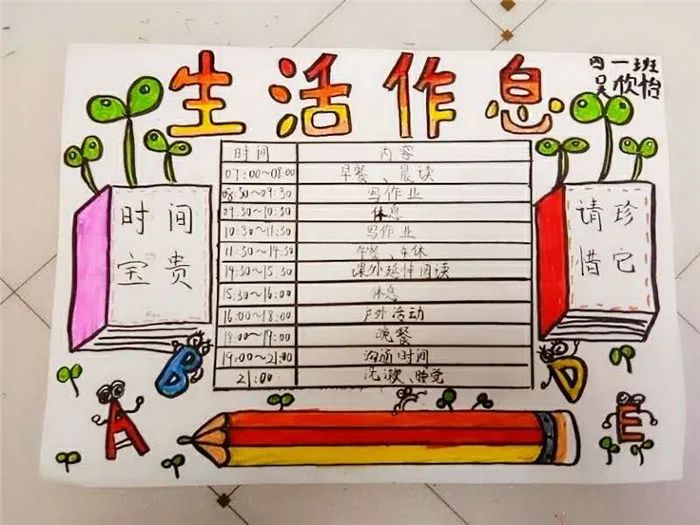 生活作息
四一班
吴欣怡
时间 内容
07:00~08:00 早餐、晨读
08:30~09:30 写作业
09:30~10:30 休息
10:30~11:30 写作业
11:30~14:30 午餐、午休
14:30~15:30 课外延伸阅读
15:30~16:00 休息
16:00~18:00 户外活动
18:00~19:00 晚餐
19:00~21:00 沟通时间
21:00 洗漱、睡觉
时间
宝贵
请珍
惜它
A
B
D
E